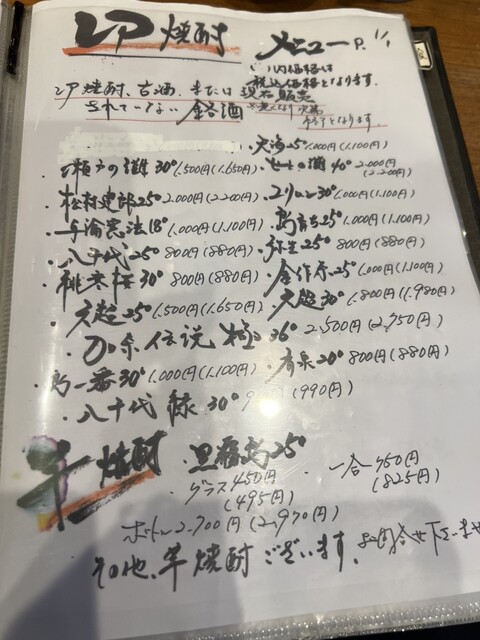 レア焼酎 メニューP.1/1
()内価格は
税込価格となります。
レア焼酎、古酒、または現在販売
されていない銘酒
※無くなり次第
終了となります。
・天海25°1.000円(1.100円)
・瀬戸の灘30°1.500円(1.650円)
40°2.000円
(2.200円)
・松村建郎25°2.000円(2.200円)
30°1.000円(1.100円)
・与論憲法18°1.000円(1.100円)
・島育ち25°1.000円(1.100円)
・八十代25°800円(880円)
・弥生25°800円(880円)
30°800円(880円)
25°1.000円(1.100円)
・久超25°1.500円(1.650円)
・久超30°1.800円(1.980円)
・加那伝説 極36° 2.500円(2.750円)
・島一番30°1.000円(1.100円)
20°800円(880円)
・八十代 緑30°9 円(990円)
芋焼酎
・黒霧島25°
・グラス450円
(495円)
・一合750円
(825円)
ボトル2.700円(2.970円)
その他、芋焼酎ございます。お問合せ下さいませ